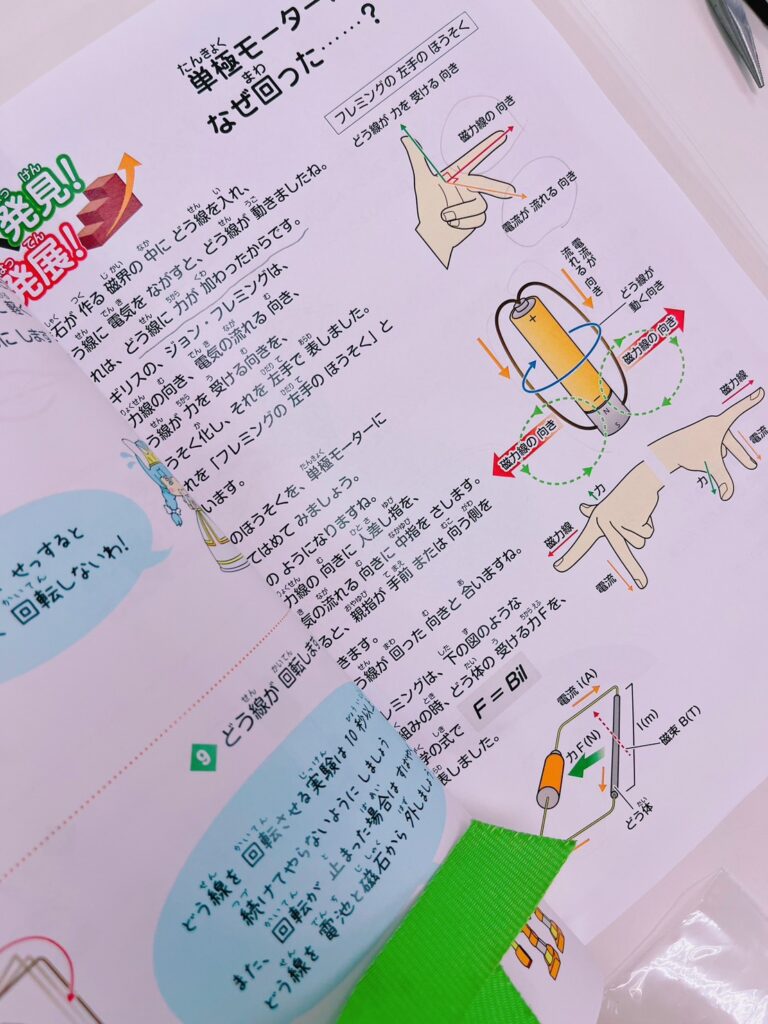 単極モーターは
なぜ回った……?
発見!
発展!
石が 作る 磁界の 中に どう線を 入れ、
う線に 電気を ながすと、どう線が 動きましたね。
れは、どう線に 力が 加わったからです。
ギリスの、ジョン・フレミングは、
力線の 向き、電気の 流れる 向き、
う線が 力を 受ける 向きを、
うそく化し、それを 左手で 表しました。
れを「フレミングの 左手の ほうそく」と
います。
のほうそくを、単極モーターに
てはめて みましょう。
の ようになりますね。
力線の 向きに 人差し指を、
気の 流れる 向きに 中指を さします。
ると、親指が 手前 または 向う側を
きます。
う線が 回った 向きと 合いますね。
レミングは、下の 図のような
組みの時、どう体の 受ける力Fを、
学の式で
表しました。
F = Bil
フレミングの 左手の ほうそく
どう線が 力を 受ける 向き
磁力線の 向き
電流が 流れる 向き
電流が
流れる 向き
どう線が
動く向き
磁力線の 向き
磁力線の 向き
+
−
N
磁力線
力
電流
力
磁力線
電流
電流 i(A)
l(m)
力 F(N)
磁束 B(T)
どう体
にしま
せっすると
回転しないわ!
9 どう線が 回転しま
どう線を 回転させる 実験は 10秒以
続けてやらないように しましょう
また、回転が 止まった 場合は すぐ
どう線を 電池と 磁石から 外しまし